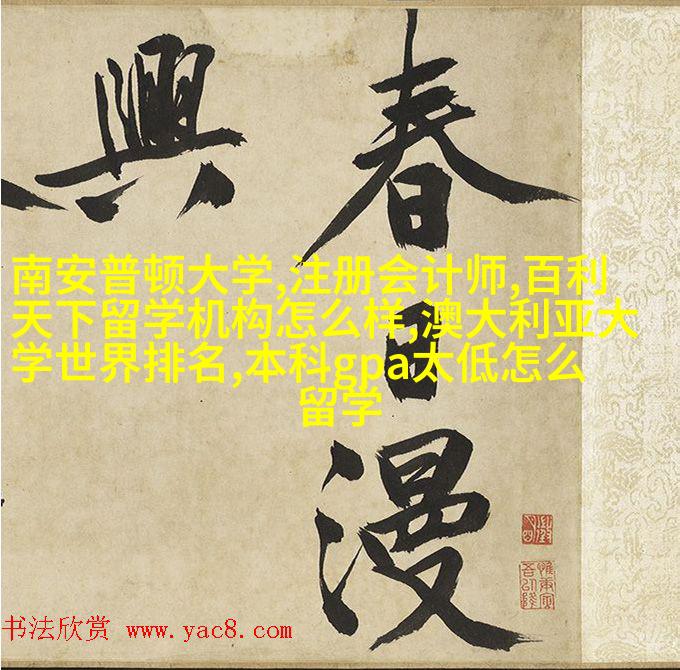 春日漫
興
南安普顿大学,注册会计师,百利
天下留学机构怎么样,澳大利亚大
学世界排名,本科gpa太低怎么
留学
书法欣赏 www.yac8.com